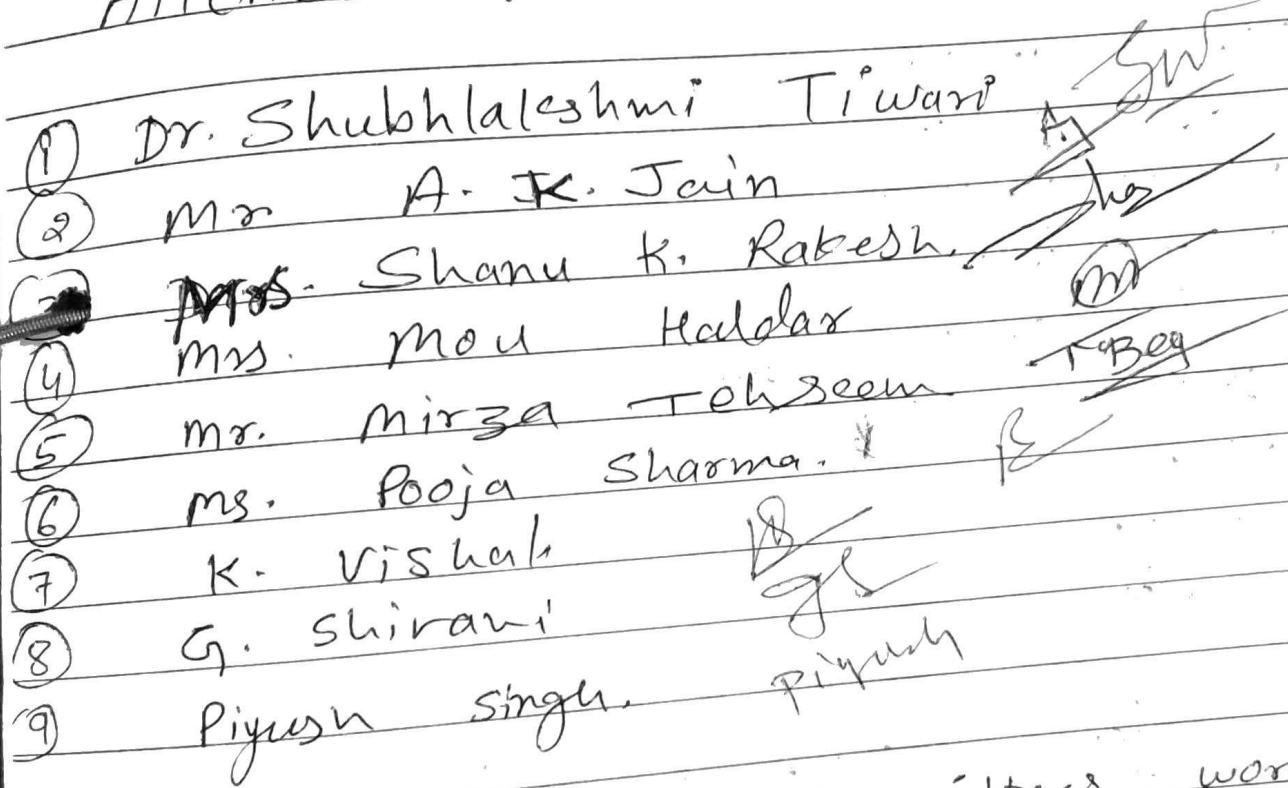 ① Dr. Shubhlakshmi Tiwari
② Mr A. K. Jain
Mrs. Shanu K. Rakesh.
④ Mrs. Mou Haldar
⑤ Mr. Mirza Tehseem T.Beg
⑥ Ms. Pooja Sharma.
⑦ K. Vishal
⑧ G. Shivani
⑨ Piyush Singh. Piyush